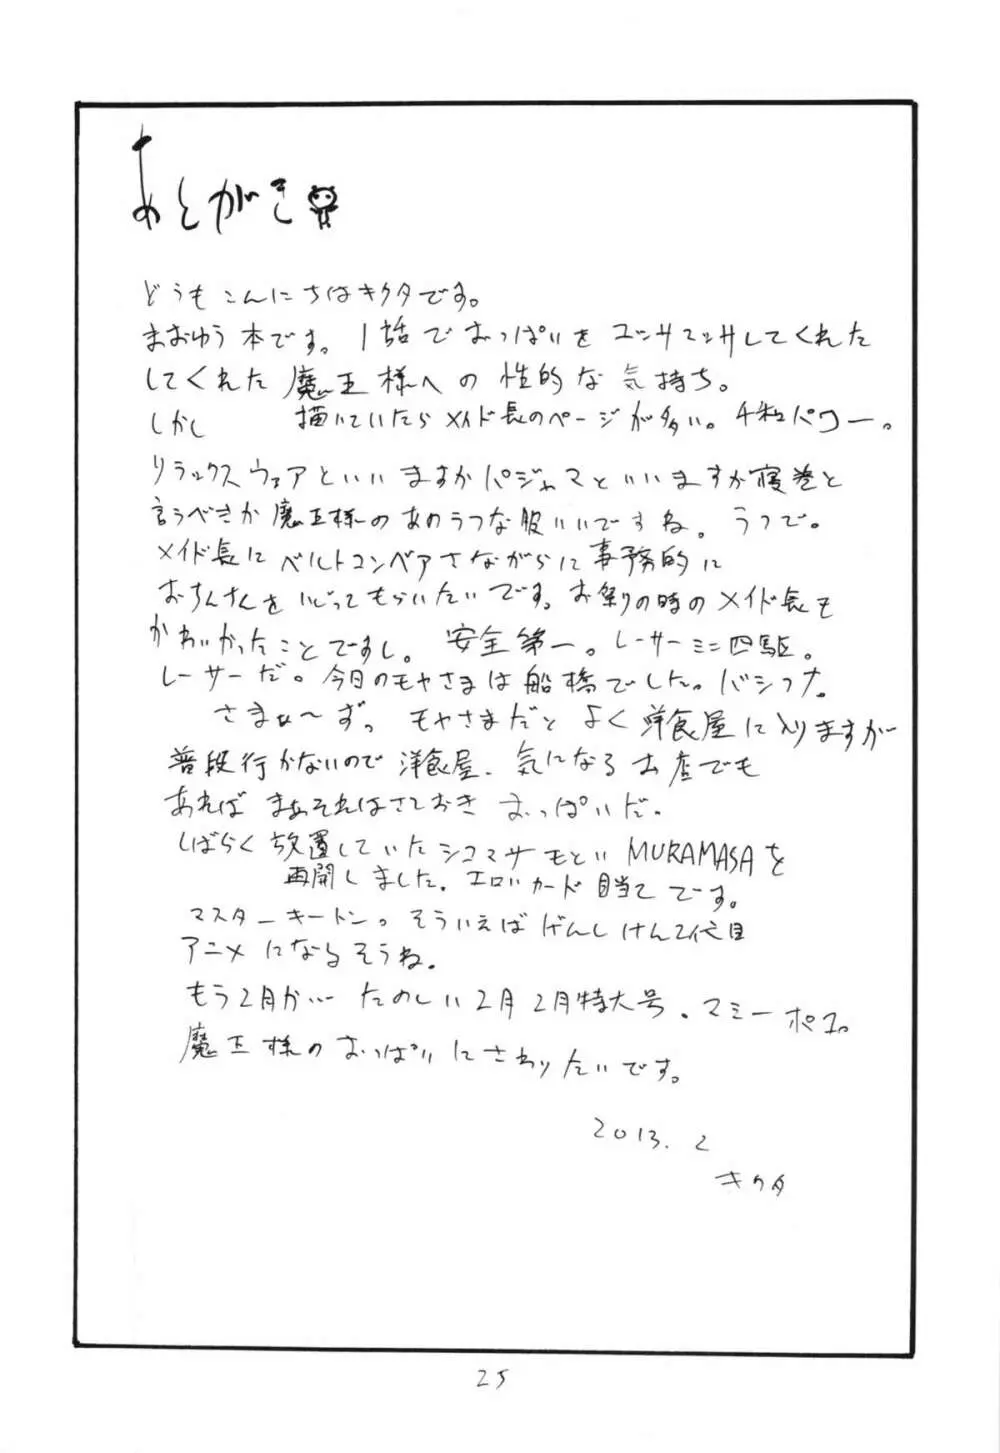 あとがき
どうもこんにちはキクタです。
まおゆう本です。1話でおっぱいをユッサユッサしてくれた
してくれた魔王様への性的な気持ち。
しかし 描いていたらメイド長のページが多い。千和パワー。
リラックスウェアといいますかパジャマといいますか寝巻と
言うべきか魔王様のあのうつな服いいですね。うつで。
メイド長にベルトコンベアさながらに事務的に
おちんちんをいじってもらいたいです。お祭りの時のメイド長も
かわいかったことですし。安全第一。レーサーミニ四駆。
レーサーだ。今日のモヤさまは船橋でした。バシフナ。
さまぁ～ずっ モヤさまだと よく洋食屋に入りますが
普段行かないので洋食屋、気になるお店でも
あれば まぁそれはさておき おっぱいだ。
しばらく放置していたシコマサもとい MURAMASAを
再開しました。エロいカード目当てです。
マスターキートン。そういえばげんしけん2代目
アニメになるそうね。
もう2月か… たのしい2月 2月特大号。マミーポコ。
魔王様のおっぱいにさわりたいです。
2013.2
キクタ
25